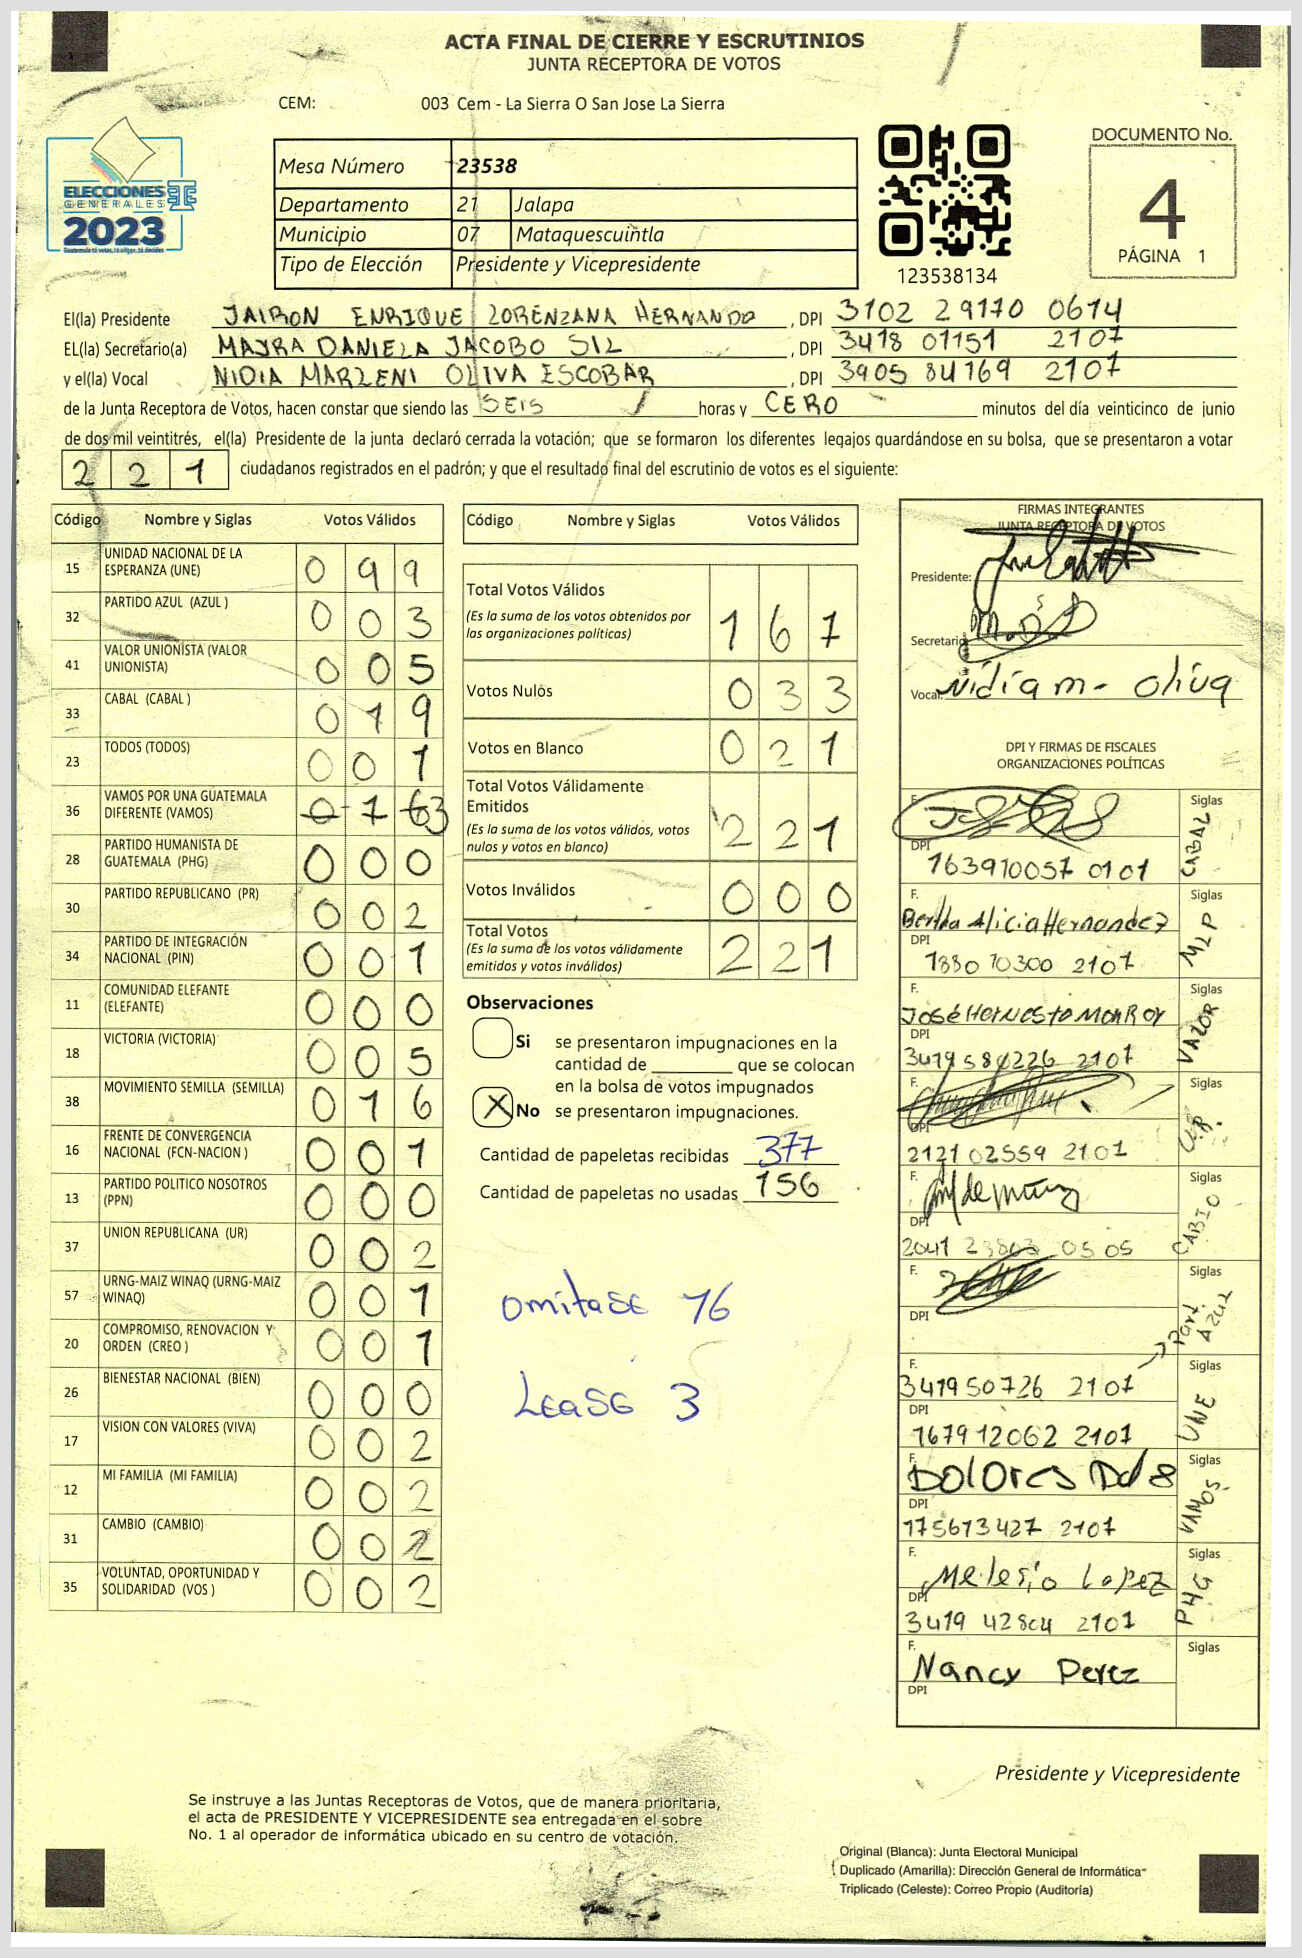 ACTA FINAL DE CIERRE Y ESCRUTINIOS
JUNTA RECEPTORA DE VOTOS
CEM: 003 Cem - La Sierra O San Jose La Sierra
ELECCIONES
GENERALES
2023
Mesa Número 23538
Departamento 21 Jalapa
Municipio 07 Mataquescuintla
Tipo de Elección Presidente y Vicepresidente
123538134
DOCUMENTO No.
4
PÁGINA 1
El(la) Presidente JAIRON ENRIQUE LORENZANA HERNANDO, DPI 3102 29170 0614
EL(la) Secretario(a) MAJRA DANIELA JACOBO SIL, DPI 3418 01151 2107
y el(la) Vocal NIDIA MARLENI OLIVA ESCOBAR, DPI 3905 84769 2107
de la Junta Receptora de Votos, hacen constar que siendo las SEIS horas y CERO minutos del día veinticinco de junio
de dos mil veintitrés, el(la) Presidente de la junta declaró cerrada la votación; que se formaron los diferentes legajos guardándose en su bolsa, que se presentaron a votar
221 ciudadanos registrados en el padrón; y que el resultado final del escrutinio de votos es el siguiente:
Código Nombre y Siglas Votos Válidos
15 UNIDAD NACIONAL DE LA ESPERANZA (UNE) 0 9 9
32 PARTIDO AZUL (AZUL ) 0 0 3
41 VALOR UNIONISTA (VALOR UNIONISTA) 0 0 5
33 CABAL (CABAL ) 0 1 9
23 TODOS (TODOS) 0 0 1
36 VAMOS POR UNA GUATEMALA DIFERENTE (VAMOS) 0 1 6 3
28 PARTIDO HUMANISTA DE GUATEMALA (PHG) 0 0 0
30 PARTIDO REPUBLICANO (PR) 0 0 2
34 PARTIDO DE INTEGRACIÓN NACIONAL (PIN) 0 0 1
11 COMUNIDAD ELEFANTE (ELEFANTE) 0 0 0
18 VICTORIA (VICTORIA) 0 0 5
38 MOVIMIENTO SEMILLA (SEMILLA) 0 1 6
16 FRENTE DE CONVERGENCIA NACIONAL (FCN-NACION ) 0 0 1
13 PARTIDO POLITICO NOSOTROS (PPN) 0 0 0
37 UNION REPUBLICANA (UR) 0 0 2
57 URNG-MAIZ WINAQ (URNG-MAIZ WINAQ) 0 0 1
20 COMPROMISO, RENOVACION Y ORDEN (CREO ) 0 0 1
26 BIENESTAR NACIONAL (BIEN) 0 0 0
17 VISION CON VALORES (VIVA) 0 0 2
12 MI FAMILIA (MI FAMILIA) 0 0 2
31 CAMBIO (CAMBIO) 0 0 2
35 VOLUNTAD, OPORTUNIDAD Y SOLIDARIDAD (VOS ) 0 0 2
Código Nombre y Siglas Votos Válidos
Total Votos Válidos 1 6 7
(Es la suma de los votos obtenidos por
las organizaciones políticas)
Votos Nulos 0 3 3
Votos en Blanco 0 2 1
Total Votos Válidamente
Emitidos 2 2 1
(Es la suma de los votos válidos, votos
nulos y votos en blanco)
Votos Inválidos 0 0 0
Total Votos 2 2 1
(Es la suma de los votos válidamente
emitidos y votos inválidos)
Observaciones
Si se presentaron impugnaciones en la
cantidad de ________ que se colocan
en la bolsa de votos impugnados
X No se presentaron impugnaciones.
Cantidad de papeletas recibidas 377
Cantidad de papeletas no usadas 156
OmitaSE 16
LEaSE 3
FIRMAS INTEGRANTES
JUNTA RECEPTORA DE VOTOS
Presidente:
Secretario
Vocal: Nidia m- oliva
DPI Y FIRMAS DE FISCALES
ORGANIZACIONES POLÍTICAS
F. Siglas CABAL
DPI 163910057 0101
F. Bertha Alicia Hernandez Siglas MLP
DPI 1380 10300 2107
F. José Hernesto Monroy Siglas VALOR
DPI 3419 584226 2107
F. Siglas
DPI 2121 02559 2101
F. Siglas
DPI 2041 23803 0505
F. Siglas Part. Azul
DPI
F. 341950726 2107 Siglas UNE
DPI 167912062 2107
F. Dolores Siglas VAMOS
DPI 175613427 2107
F. Melesio Lopez Siglas PHG
DPI 3419 42804 2101
F. Nancy Perez Siglas
DPI
Presidente y Vicepresidente
Se instruye a las Juntas Receptoras de Votos, que de manera prioritaria,
el acta de PRESIDENTE Y VICEPRESIDENTE sea entregada en el sobre
No. 1 al operador de informática ubicado en su centro de votación.
Original (Blanca): Junta Electoral Municipal
Duplicado (Amarilla): Dirección General de Informática
Triplicado (Celeste): Correo Propio (Auditoría)